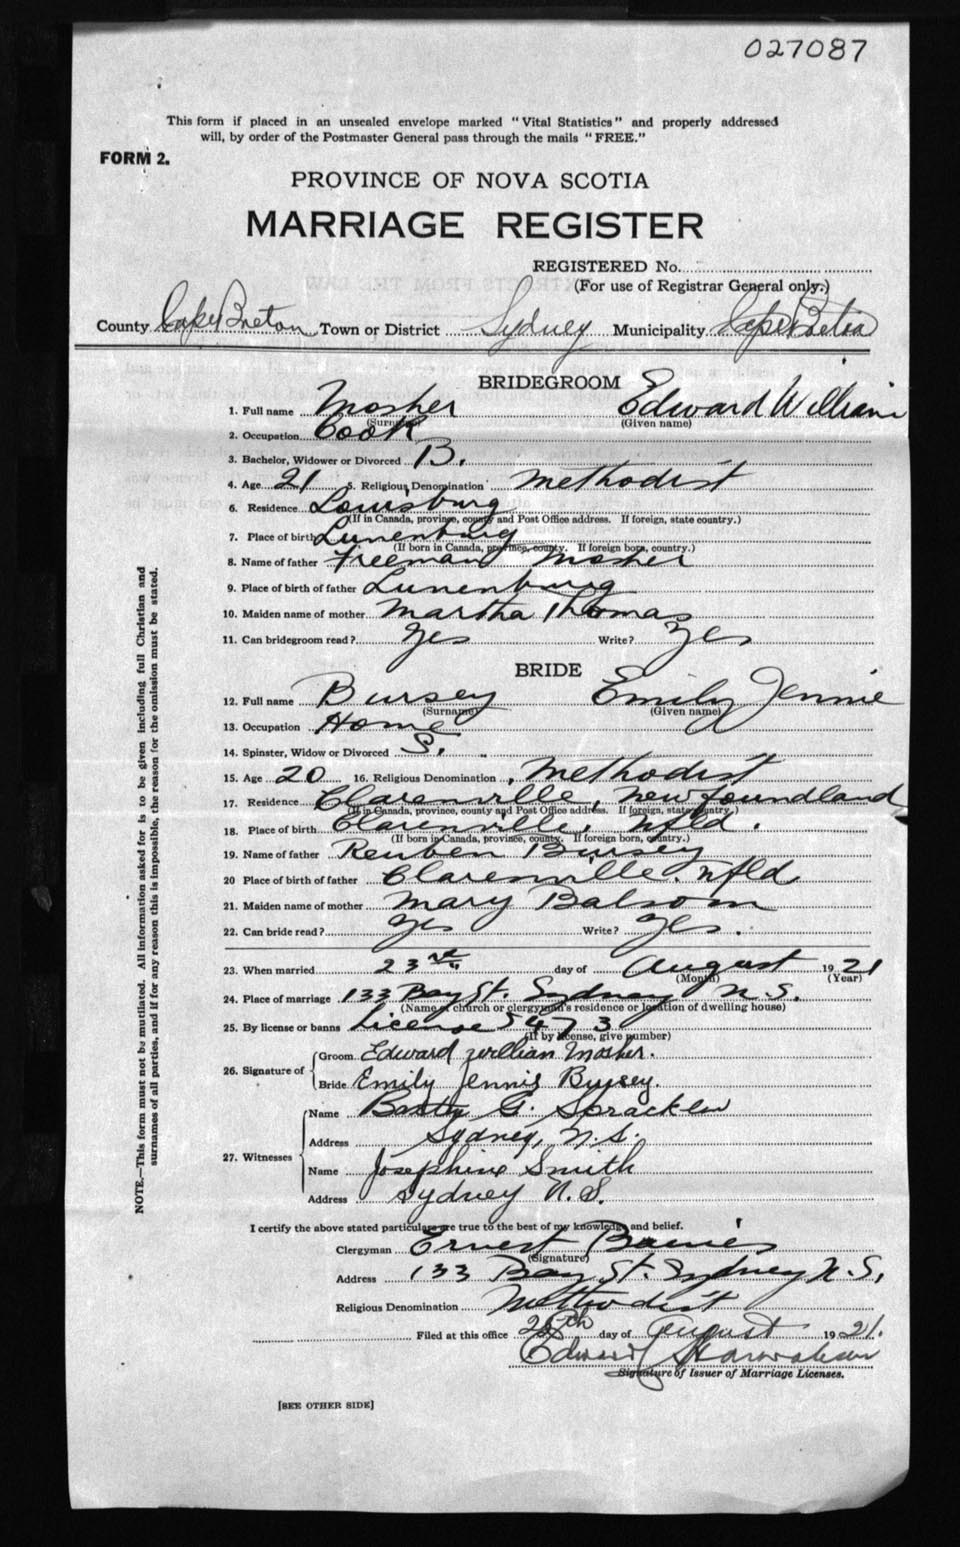 027087
This form if placed in an unsealed envelope marked "Vital Statistics" and properly addressed
will, by order of the Postmaster General pass through the mails "FREE."
FORM 2.
PROVINCE OF NOVA SCOTIA
MARRIAGE REGISTER
REGISTERED No.
(For use of Registrar General only.)
County Cape Breton Town or District Sydney Municipality Cape Breton
BRIDEGROOM
1. Full name Mosher Edward William
(Surname) (Given name)
2. Occupation Cook
3. Bachelor, Widower or Divorced B.
4. Age 21 5. Religious Denomination Methodist
6. Residence Louisburg
(If in Canada, province, county and Post Office address. If foreign, state country.)
7. Place of birth Lunenburg
(If born in Canada, province, county. If foreign born, country.)
8. Name of father Freeman Mosher
9. Place of birth of father Lunenburg
10. Maiden name of mother Martha Thomas
11. Can bridegroom read? Yes Write? Yes
BRIDE
12. Full name Bursey Emily Jennie
(Surname) (Given name)
13. Occupation Home
14. Spinster, Widow or Divorced S.
15. Age 20 16. Religious Denomination Methodist
17. Residence Clarenville, Newfoundland
(If in Canada, province, county and Post Office address. If foreign, state country.)
18. Place of birth Clarnville, Nfld.
(If born in Canada, province, county. If foreign born, country.)
19. Name of father Reuben Bursey
20 Place of birth of father Clarenville. Nfld
21. Maiden name of mother Mary Balsom
22. Can bride read? Yes Write? Yes.
23. When married 23rd day of August 1921
(Month) (Year)
24. Place of marriage 133 Bay St. Sydney N.S.
(Name of church or clergyman's residence or location of dwelling house)
25. By license or banns License 5473
(If by license, give number)
26. Signature of
Groom Edward William Mosher.
Bride Emily Jennie Bursey.
27. Witnesses
Name G. Spracklen
Address Sydney, N.S.
Name Josephine Smith
Address Sydney N.S.
I certify the above stated particulars are true to the best of my knowledge and belief.
Clergyman Ernest
(Signature)
Address 133 Bay St. Sydney N.S.
Religious Denomination Methodist
Filed at this office day of August 1921.
Edward
Signature of Issuer of Marriage Licenses.
[SEE OTHER SIDE]
NOTE.—This form must not be mutilated. All information asked for is to be given including full Christian and
surnames of all parties, and if for any reason this is impossible, the reason for the omission must be stated.